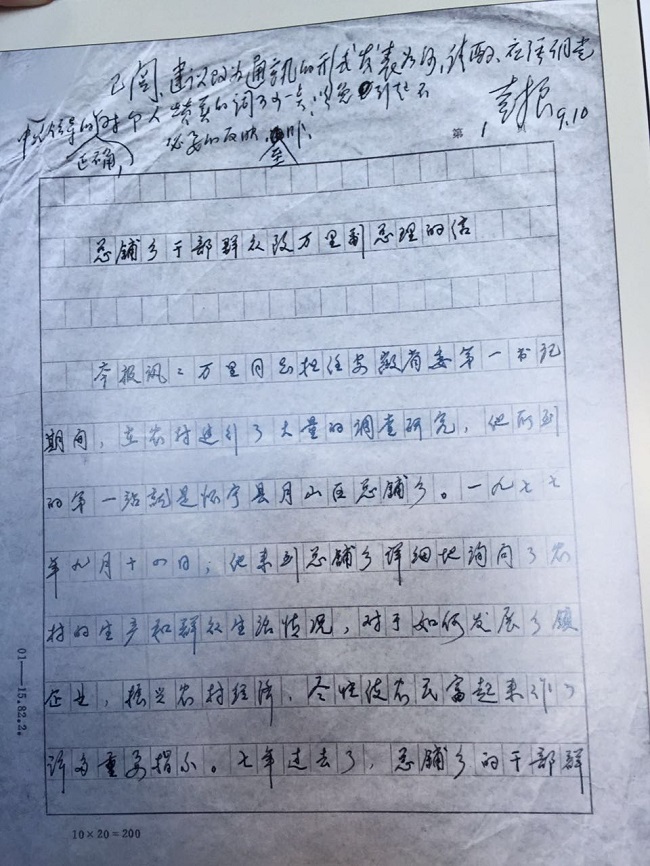 已阅,建议改为通讯的形式发表为何,请酌、应强调党
中央领导的 中人赞美的词可少一点,以免引起不
正确, 必要的反映,
至
彭振
9.10
第 1
总铺乡干部群众致万里副总理的信
本报讯:万里同志担任安徽省委第一书记
期间,在农村进行了大量的调查研究,他所到
的第一站就是怀宁县月山区总铺乡。一九七七
年九月十四日,他来到总铺乡详细地询问了农
村的生产和群众生活情况,对于如何发展乡镇
企业,振兴农村经济,尽快使农民富起来作了
许多重要指示。七年过去了,总铺乡的干部群
01—15.82.2.
10×20=200